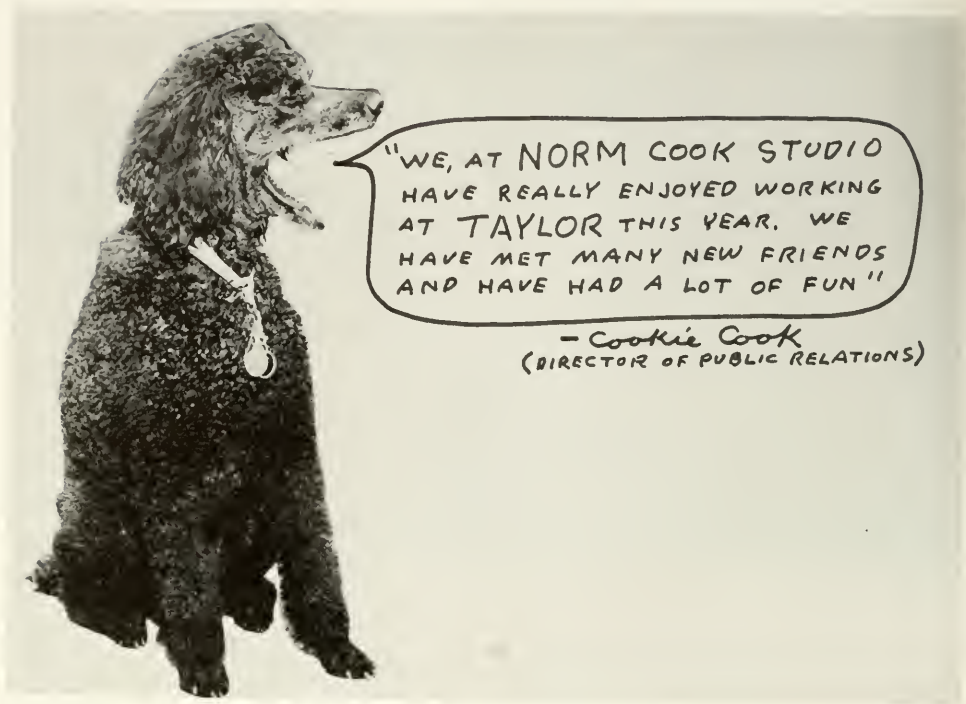 "WE, AT NORM COOK STUDIO
HAVE REALLY ENJOYED WORKING
AT TAYLOR THIS YEAR. WE
HAVE MET MANY NEW FRIENDS
AND HAVE HAD A LOT OF FUN"
- Cookie Cook
(DIRECTOR OF PUBLIC RELATIONS)